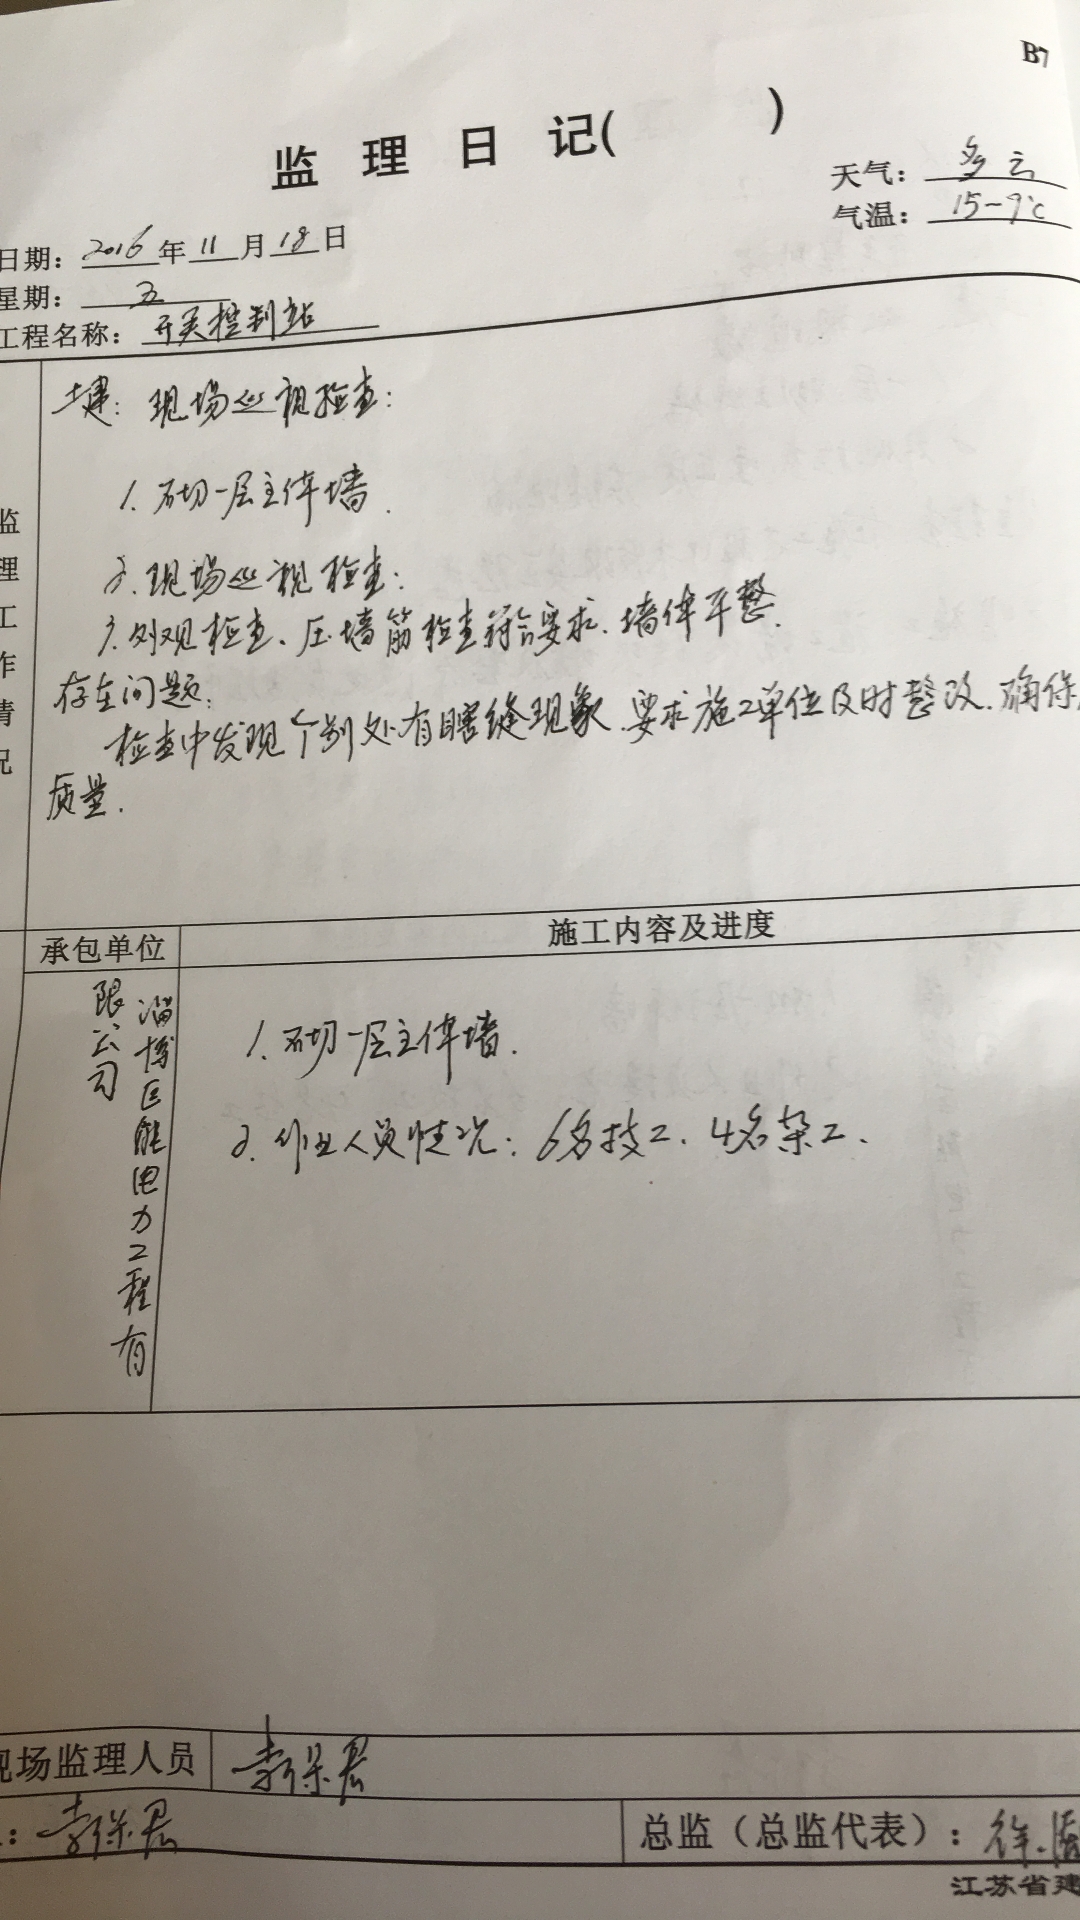 B7
监 理 日 记( )
天气：多云
气温：15-9℃
日期：2016年11月18日
星期：五
工程名称：开关控制站
监理工作情况
土建：现场巡视检查：
1. 砌一层主体墙.
2. 现场巡视检查：
3. 外观检查、压墙筋检查符合要求、墙体平整.
存在问题：
检查中发现个别处有瞎缝现象、要求施工单位及时整改、确保
质量.
承包单位
施工内容及进度
淄博巨能电力工程有
限公司
1. 砌一层主体墙.
2. 作业人员情况：6名技工、4名杂工、
现场监理人员
李保
李保
总监（总监代表）：徐
江苏省建